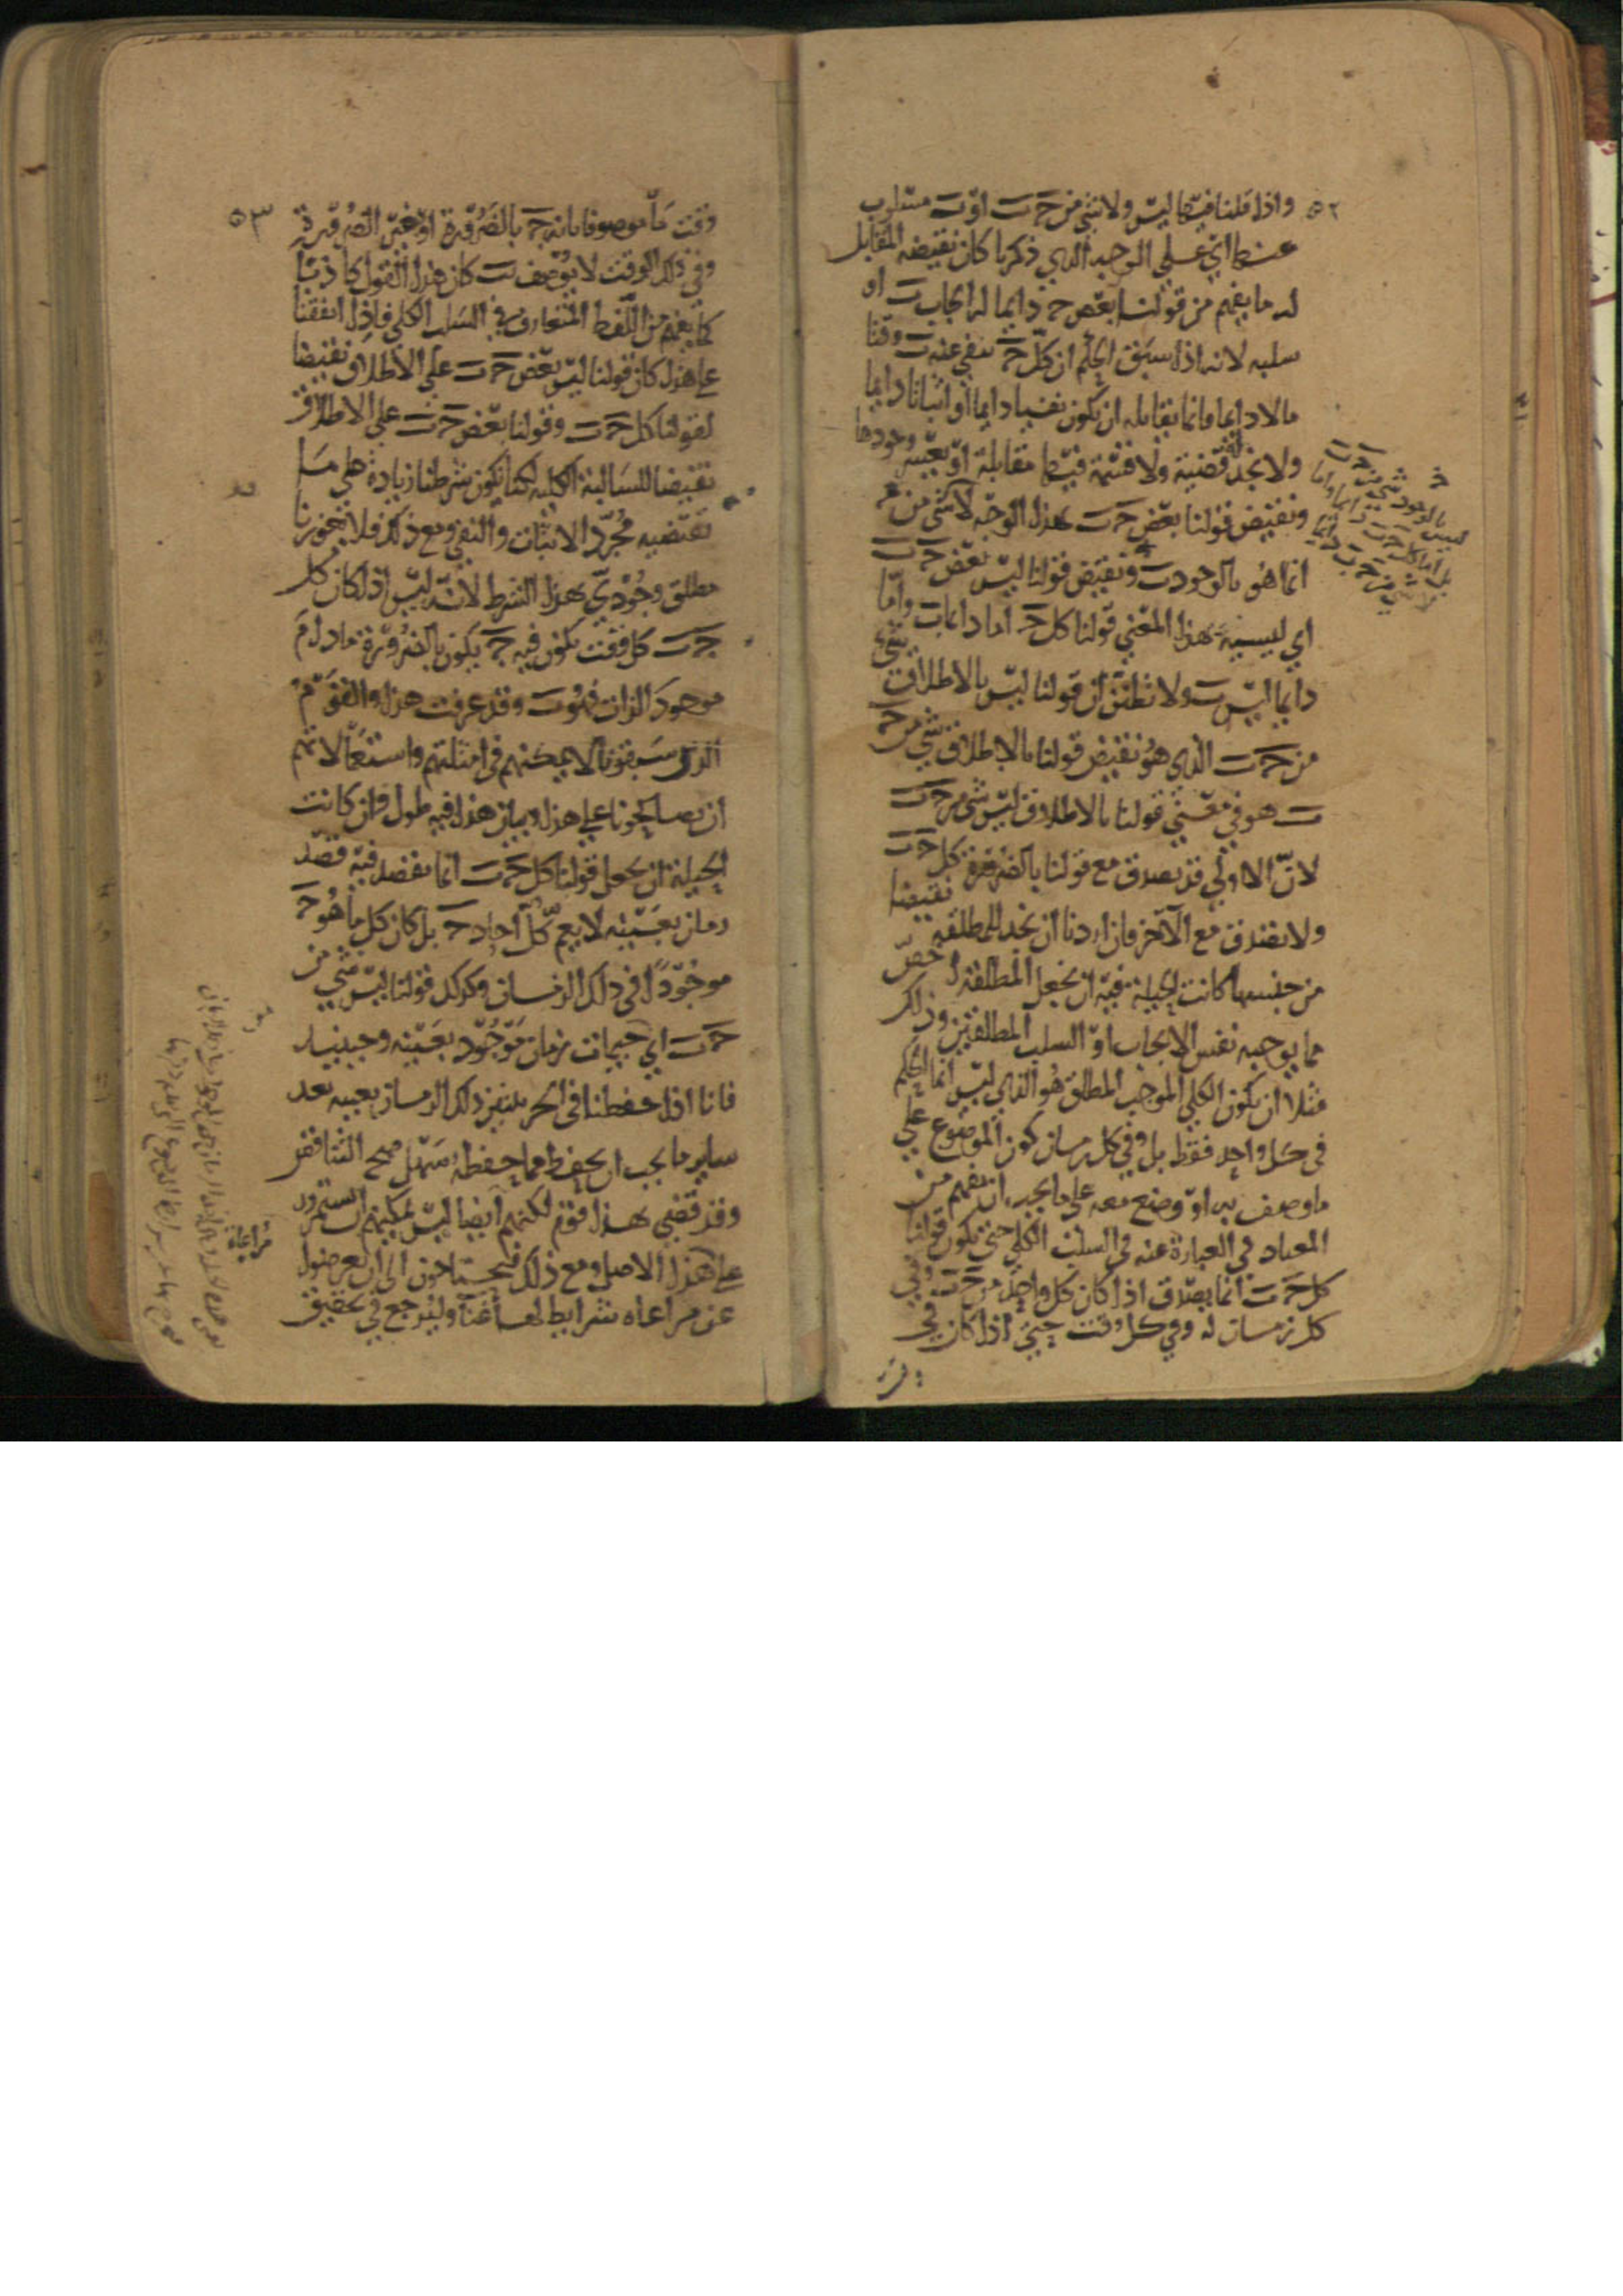 ٥٢
واذا قلنا فيهما ليس ولا شي من جـ ب او ب مسلوب
عنها اي علي الوجه الذي ذكرنا كان نقيضه المقابل
له ما يفهم من قولنا بعض جـ دايما له ايجاب ب او
سلبه لانه اذا سبق الحكم ان كل جـ ينفي عنه ب وقتا
ما لا دايما فانما يقابله ان يكون نفيا دايما او اثباتا دايما
ولا نجد له قضية ولا قسمة فيها مقابلة او يعسر وجودها
ونقيض قولنا بعض جـ ب بهذا الوجه لا شي من جـ
انما هو بالوجود ب ونقيض قولنا ليس بعض جـ ب
اي ليسية بهذا المعني قولنا كل جـ اما دايما ب واما
دايما ليس ب ولا تظنن ان قولنا ليس بالاطلاق شي
من جـ ب الذي هو نقيض قولنا بالاطلاق شي من جـ
ب هو في معني قولنا بالاطلاق ليس شي من جـ ب
لان الاولي قد يصدق مع قولنا بالضرورة كل جـ ب
ولا يصدق مع الآخر فان اردنا ان نجد للمطلقة نقيضا
من جنسها كانت الحيلة فيه ان نجعل المطلقة اخص
مما يوجبه نفس الايجاب او السلب المطلقين وذلك
مثلا ان يكون الكلي الموجب المطلق هو الذي ليس انما الحكم
في كل واحد فقط بل وفي كل زمان كون الموضوع علي
ما وصف به او وضع معه علي ما يجب ان يفهم من
المعتاد في العبارة عنه في السلب الكلي حتي يكون قولنا
كل جـ ب انما يصدق اذا كان كل واحد من جـ ب وفي
كل زمان له وفي كل وقت حتي اذا كان في
جـ
ليس بالوجود شي من جـ ب
بل اما كل جـ ب دايما واما
لا شي من جـ ب دايما
٥٣
وقت ما موصوفا بانه جـ بالضرورة او غير الضرورة
وفي ذلك الوقت لا يوصف بب كان هذا القول كاذبا
كما يفهم من اللفظ المتعارف في السلب الكلي فاذا اتفقنا
علي هذا كان قولنا ليس بعض جـ ب علي الاطلاق نقيضا
لقولنا كل جـ ب وقولنا بعض جـ ب علي الاطلاق
نقيضا للسالبة الكلية لكنا نكون شرطنا زيادة علي ما
تقتضيه مجرد الاثبات والنفي ومع ذلك فلا يعوزنا
مطلق وجودي بهذا الشرط لانه ليس اذا كان كل
جـ ب كل وقت يكون فيه جـ يكون بالضرورة ما دام
موجود الذات فهو ب وقد عرفت هذا والقوم
الذين سبقونا لا يمكنهم في امثلتهم واستعمالاتهم
ان يصالحونا علي هذا وبيان هذا فيه طول وان كانت
الحيلة ان يجعل قولنا كل جـ ب انما يقصد فيه قصد
زمان بعينه لا يعم كل آحاد جـ بل كان كل ما هو جـ
موجودا في ذلك الزمان وكذلك قولنا ليس شي من
جـ ب اي جيمات زمان موجود بعينه وحينيذ
فانا اذا حفظنا في الجزييتين ذلك الزمان بعينه بعد
ساير ما يجب ان يحفظ مما حفظه سهل صح التناقض
وقد قضي بهذا قوم لكنهم ايضا ليس يمكنهم ان يستمروا
علي هذا الاصل ومع ذلك فيحتاجون الي ان يعرضوا
عن مراعاه شرايط لها غنآ وليرجع في تحقيق
مراعاة